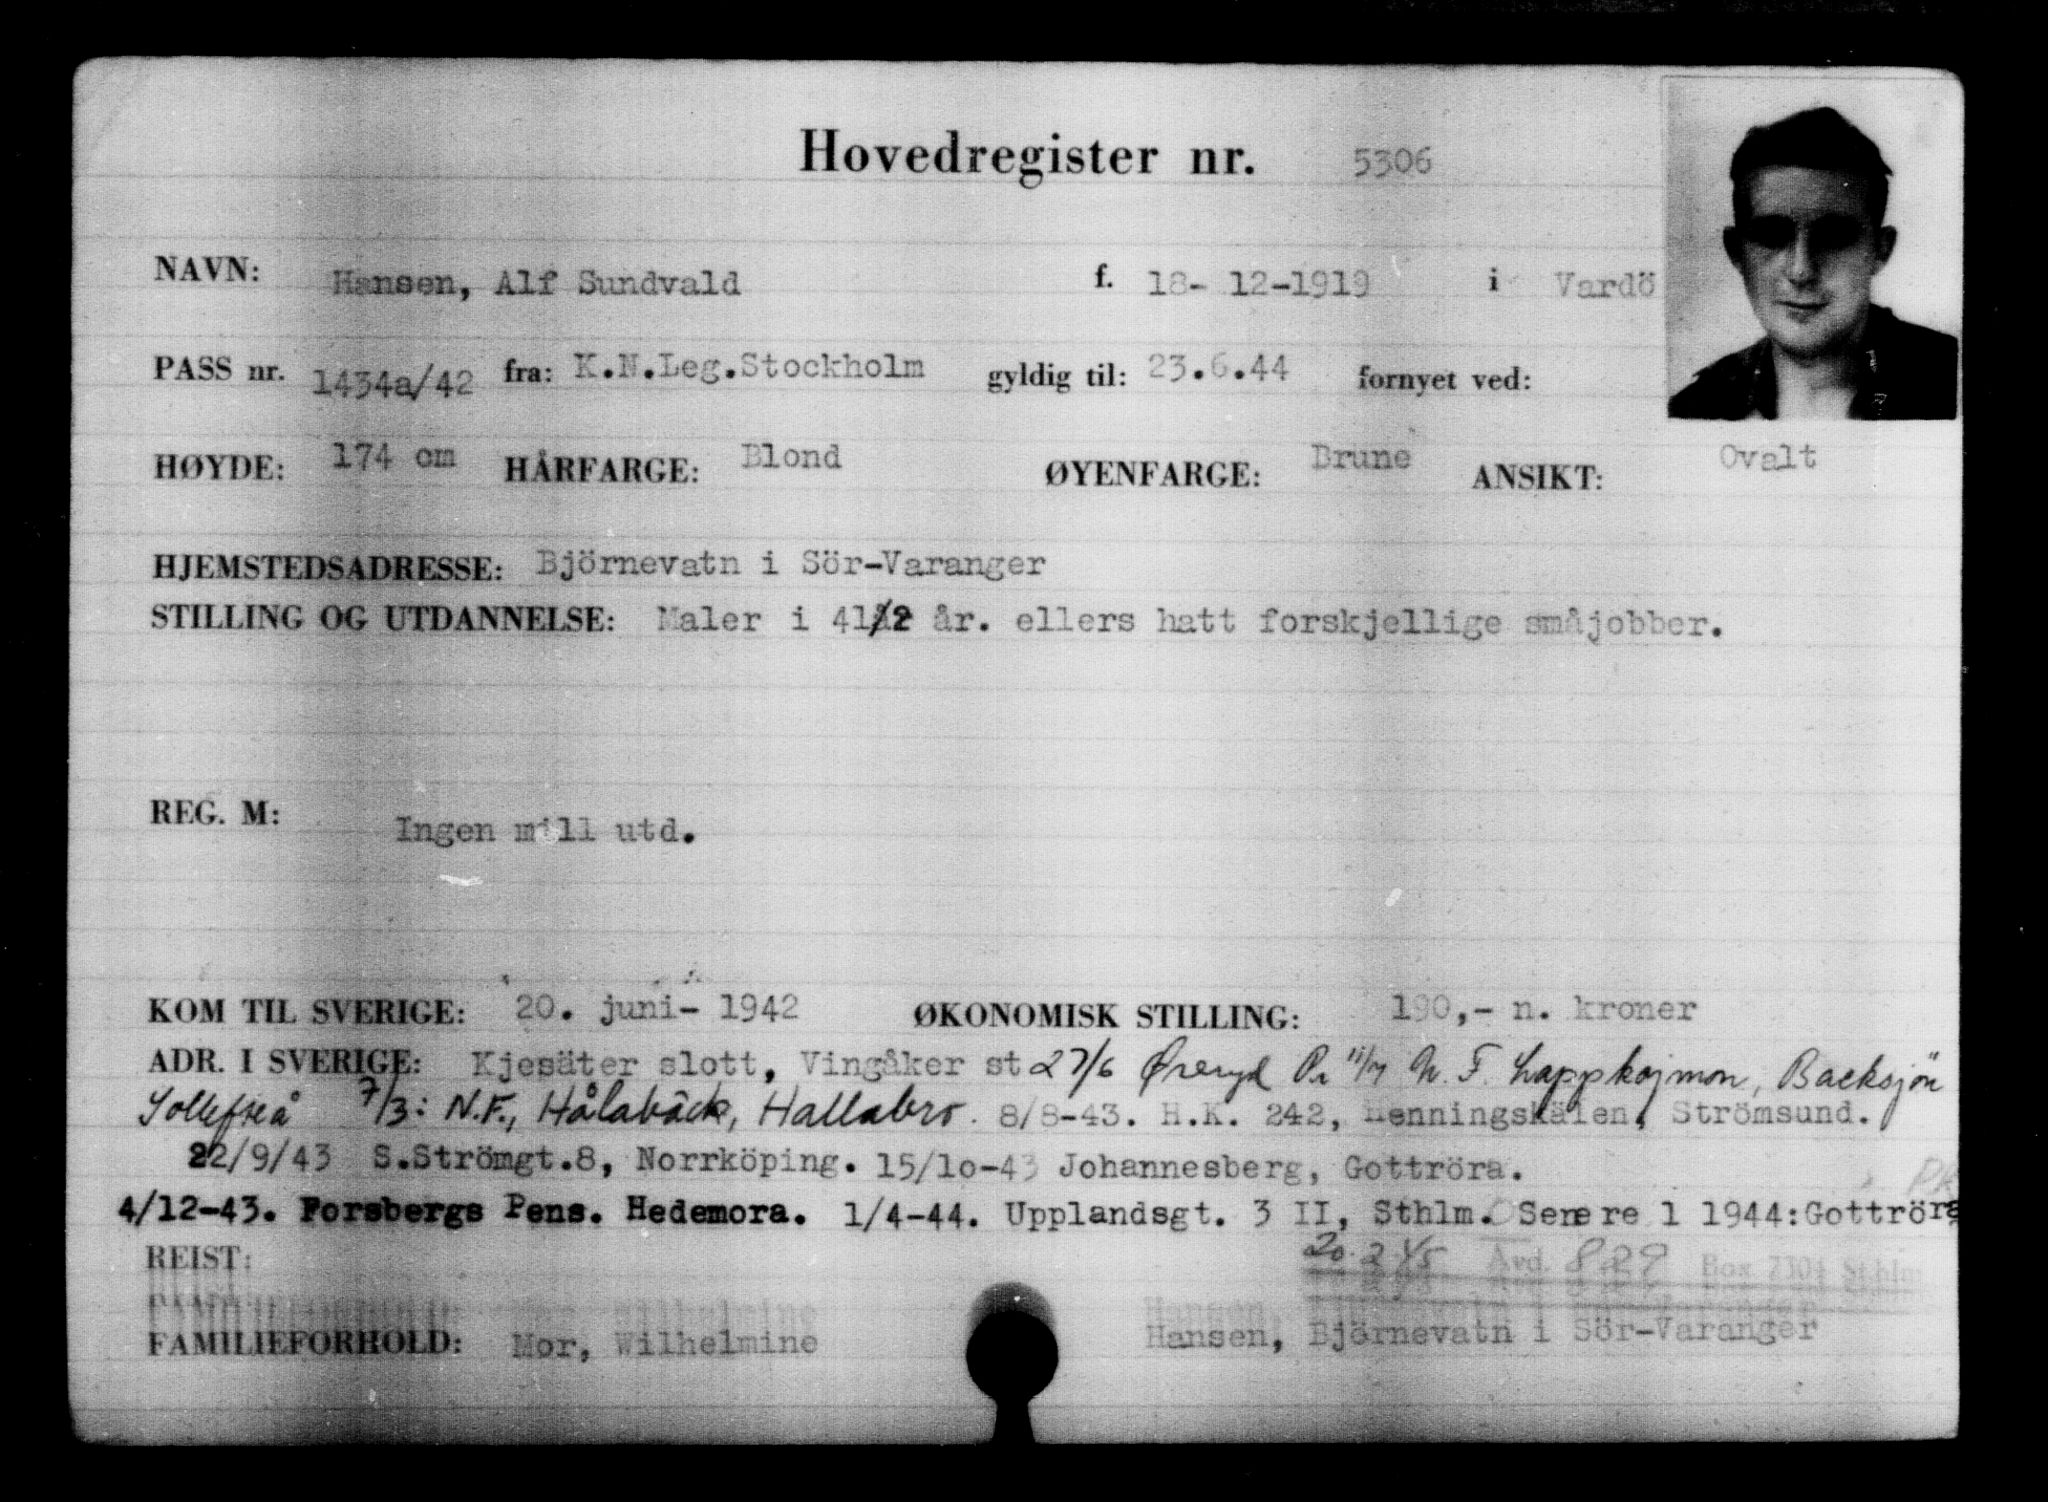 Hovedregister nr. 5306
NAVN: Hansen, Alf Sundvald f. 18- 12-1919 i Vardö
PASS nr. 1434a/42 fra: K.N.Leg.Stockholm gyldig til: 23.6.44 fornyet ved:
HØYDE: 174 cm HÅRFARGE: Blond ØYENFARGE: Brune ANSIKT: Ovalt
HJEMSTEDSADRESSE: Björnevatn i Sör-Varanger
STILLING OG UTDANNELSE: Maler i 41/2 år. ellers hatt forskjellige småjobber.
REG. M: Ingen mill utd.
KOM TIL SVERIGE: 20. juni- 1942 ØKONOMISK STILLING: 190,- n. kroner
ADR. I SVERIGE: Kjesäter slott, Vingåker st 27/6 Øreryd Pr 11/7 N.F. Lappkojmon, Backsjön
Sollefteå 7/3: N.F., Hålabäck, Hallabro. 8/8-43. H.K. 242, Henningskälen, Strömsund.
22/9/43 S.Strömgt.8, Norrköping. 15/10-43 Johannesberg, Gottröra.
4/12-43. Forsbergs Pens. Hedemora. 1/4-44. Upplandsgt. 3 II, Sthlm. Senere 1 1944:Gottröra
REIST: 20.2.45 Avd. 829 Box 2301 Sthlm
FAMILIEFORHOLD: Mor, Wilhelmine Hansen, Björnevatn i Sör-Varanger